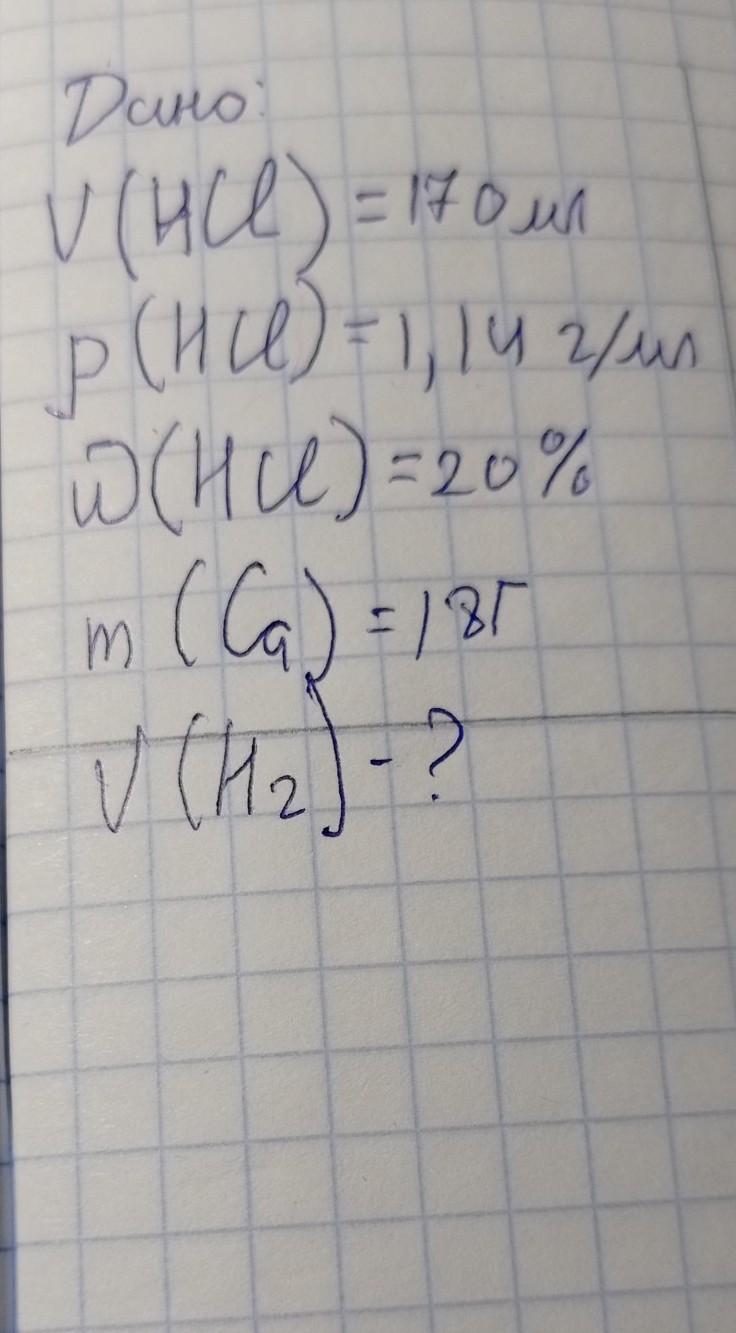 Дано:
V(HCl)=170мл
p(HCl)=1,14 г/мл
ω(HCl)=20%
m(Ca)=18г
V(H₂)-?